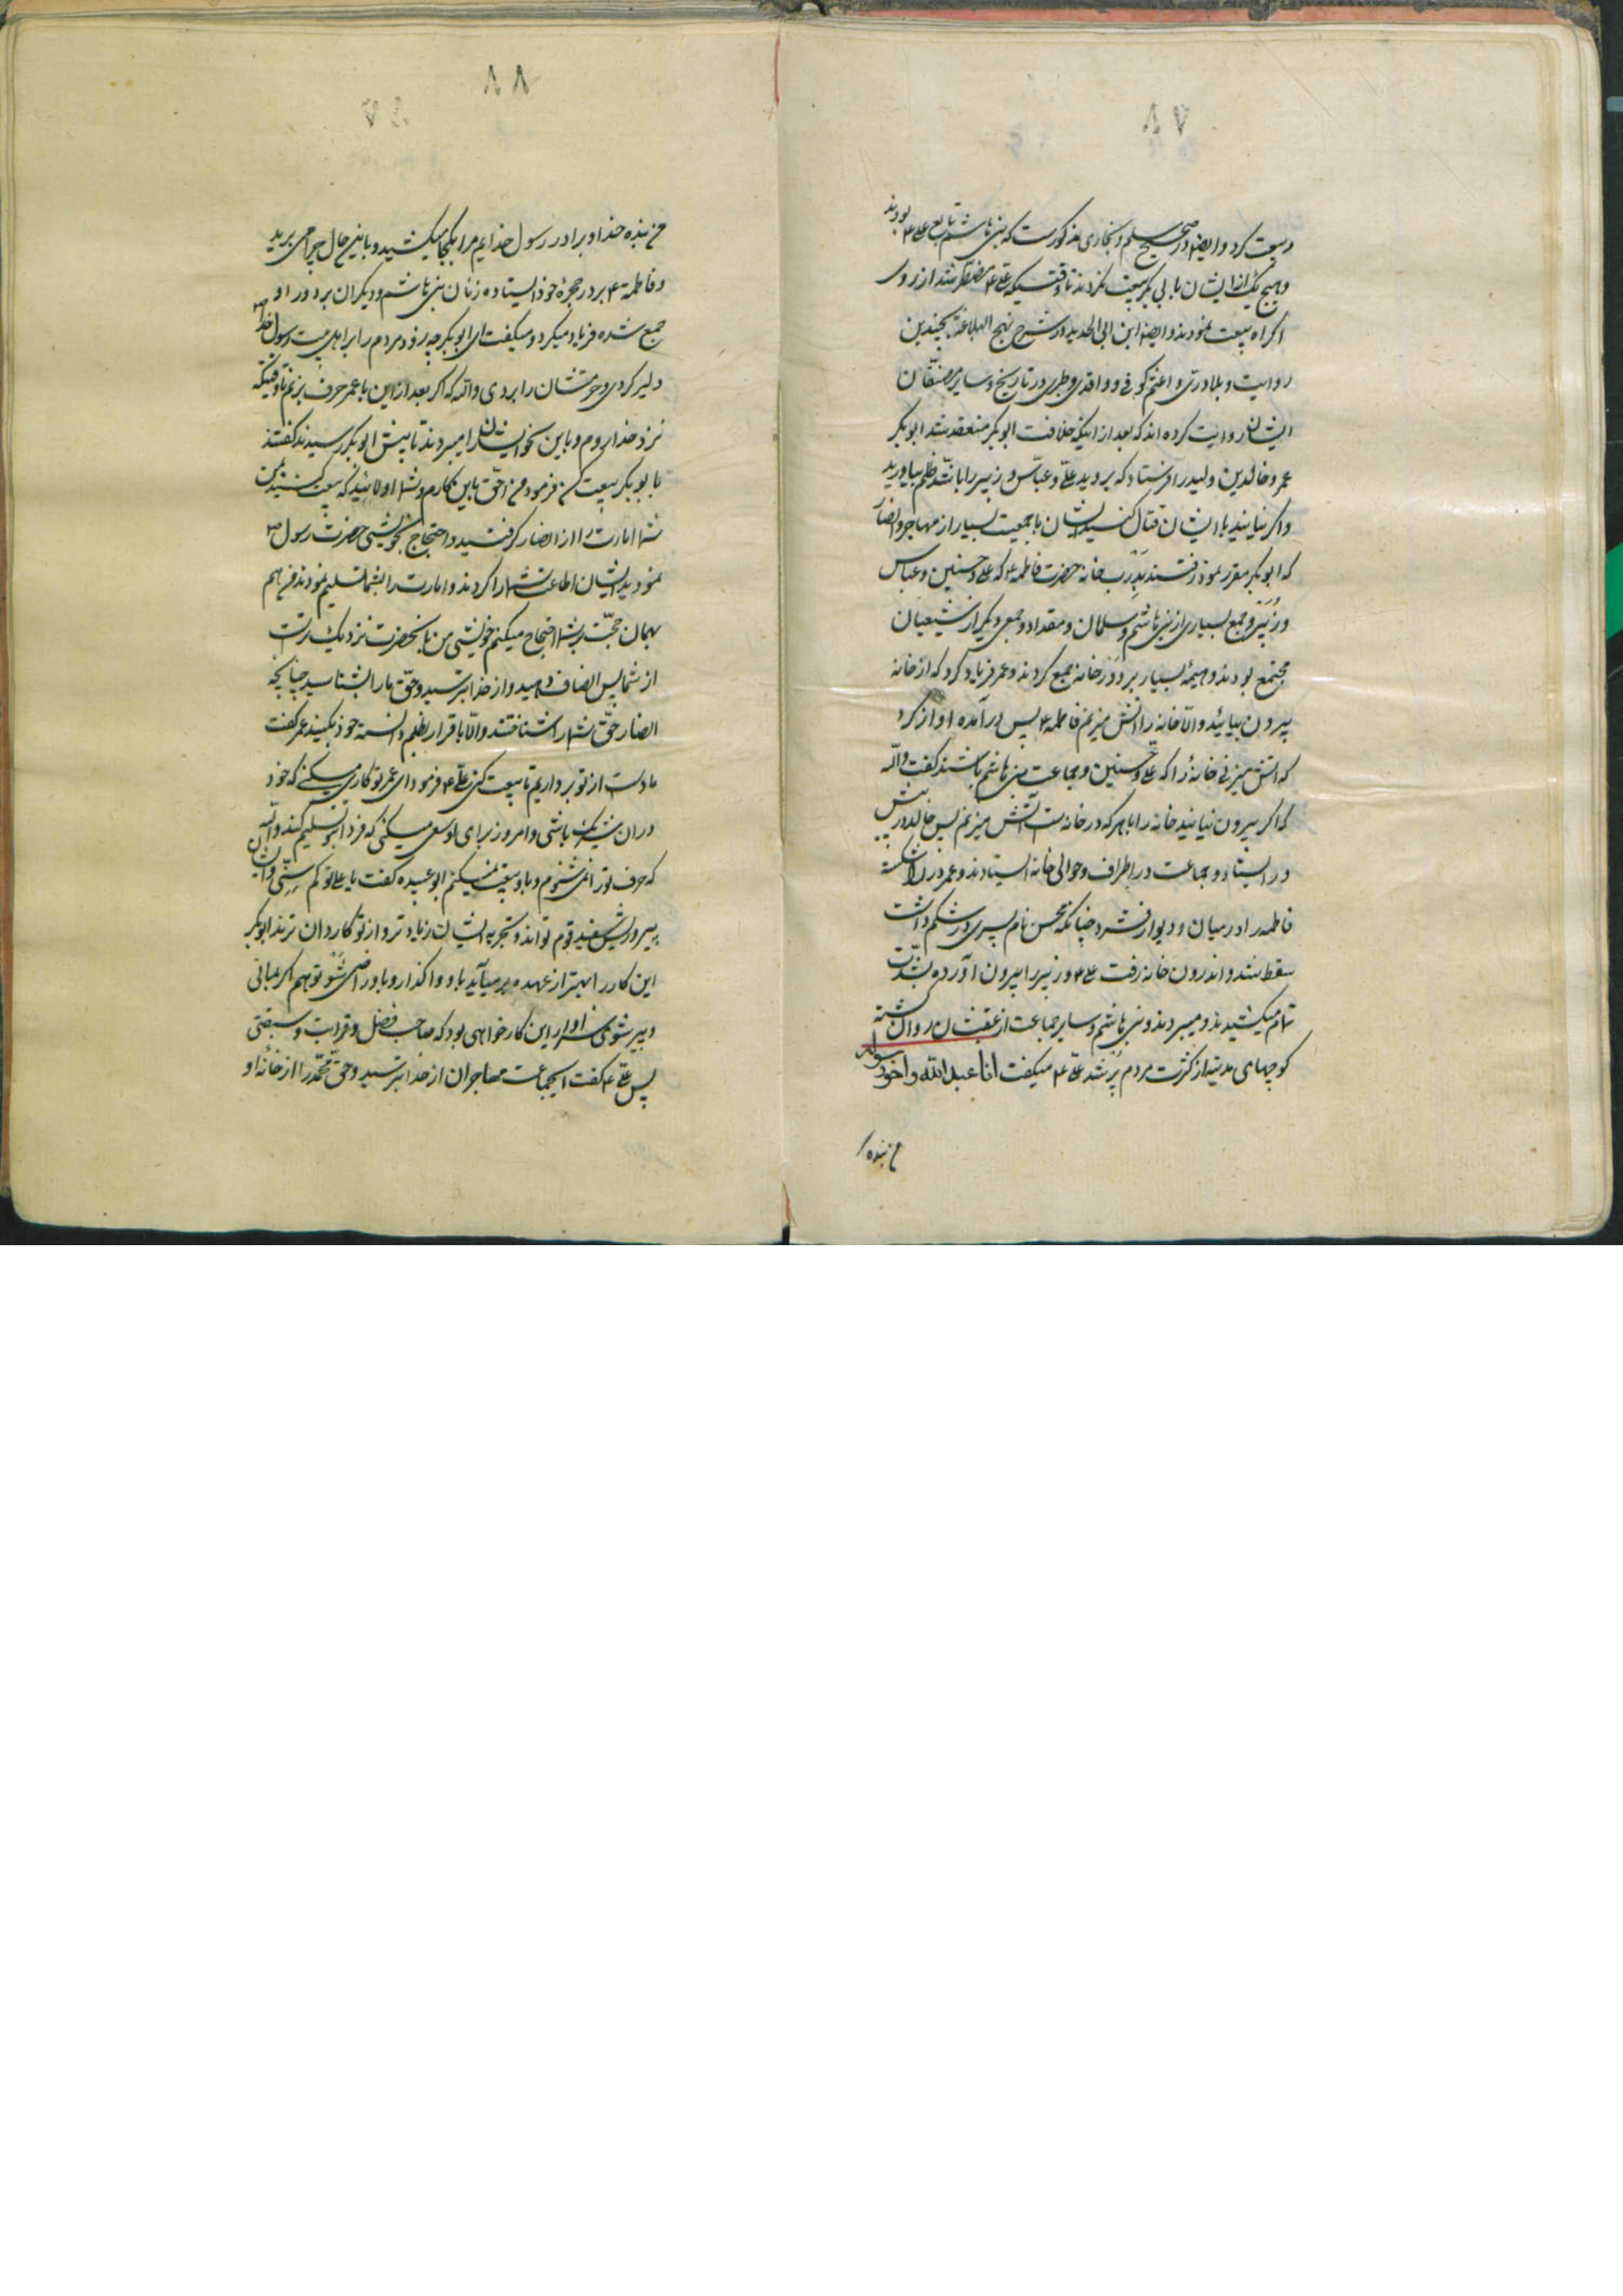 ۸۷
و بیعت کرد و ایضا در صحیح مسلم و بخاری مذکورست که بنی هاشم تابع علی ع بودند
و هیچ یک از ایشان با بی بکر بیعت نکردند تا وقتیکه علی ع مضطر شد از روی
اکراه بیعت نمودند و ایضا ابن ابی الحدید در شرح نهج البلاغة بچندین
روایت و بلاذری و اعثم کوفی و واقدی و طبری در تاریخ و سایر مصنفان
ایشان روایت کرده اند که بعد از اینکه خلافت ابوبکر منعقد شد ابوبکر
عمر و خالد بن ولید را فرستاد که بروید علی و عباس و زبیر را با شد ظلم بیاورید
و اکر نیایند با ایشان قتال کنید ایشان با جمعیت بسیار از مهاجر و انصار
که ابوبکر مقرر نمود رفتند بدرب خانه حضرت فاطمه ع که علی و حسنین و عباس
و زبیر و جمع بسیاری از بنی هاشم و سلمان و مقداد و جمعی دیکر از شیعیان
مجتمع بودند و هیمهٔ بسیار بر در خانه جمع کردند و عمر فریاد کرد که از خانه
بیرون بیائید و الا خانه را آتش میزنم فاطمه ع پس در آمده آواز کرد
که آتش میزنی خانهٔ را که علی و حسنین و جماعت بنی هاشم باشند کفت والله
که اکر بیرون نیایید خانه را با هر که در خانه است آتش میزنم پس خالد در پیش
در ایستاد و جماعت در اطراف و حوالی خانه ایستادند و عمر در را شکسته
فاطمه را در میان در و دیوار فشرد چنانکه محسن نام پسری در شکم داشت
سقط شد و اندرون خانه رفت علی ع و زبیر را بیرون آورده بشدت
تمام میکشیدند و میبردند و بنی هاشم و سایر جماعت از عقبشان روان کشته
کوچهای مدینه از کثرت مردم پر شد علی ع میکفت انا عبد الله و اخو رسوله
من بنده
۸۸
من بنده خدا و برادر رسول خدایم مرا بکجا میکشید و باین حال چرا می برید
و فاطمه ع بر در حجرهٔ خود ایستاده زنان بنی هاشم و دیکران بر دور او
جمع شده فریاد میکرد و میکفت ای ابوبکر چه زود مردم را بر اهل بیت رسول خدا ص
دلیر کردی و حرمتشان را بردی والله که اکر بعد از این با عمر حرف بزنم تا وقتیکه
نزد خدا روم و باین نحو ایشان را میبردند تا پیش ابوبکر رسیدند کفتند
با بوبکر بیعت کن فرمود من احق باین کارم و شما اولائید که بیعت کنید بمن
شما امارت را از انصار کرفتید و احتجاج بخویشی حضرت رسول ص
نمودید ایشان اطاعت شما را کردند و امارت را بشما تسلیم نمودند من هم
بهمان حجت بر شما احتجاج میکنم خویشی من بآنحضرت نزدیک ترست
از شما پس انصاف دهید و از خدا بترسید و حق ما را بشناسید چنانچه
انصار حق شما را شناختند و الا باقرار بظلم دانسته خود بکنید عمر کفت
ما دست از تو بر نداریم تا بیعت کنی علی ع فرمود ای عمر تو کاری میکنی که خود
در آن شریک باشی و امروز برای او سعی میکنی که فردا بتو تسلیم کند والله
که حرف تو را نمی شنوم و با او بیعت نمیکنم ابو عبیده کفت یا علی تو کم سنی و ایشان
پیر و ریش سفید قوم تو اند و تجربه ایشان زیاد تر و از تو کاردان ترند ابوبکر
این کار را بهتر از عهده بر میآید باو واکذار و باو راضی شو تو هم اکر بمانی
و پیر شوی سزاوار این کار خواهی بود که صاحب فضل و قرابت و سبقتی
پس علی ع کفت ایجماعت مهاجران از خدا بترسید و حق محمد را از خانه او